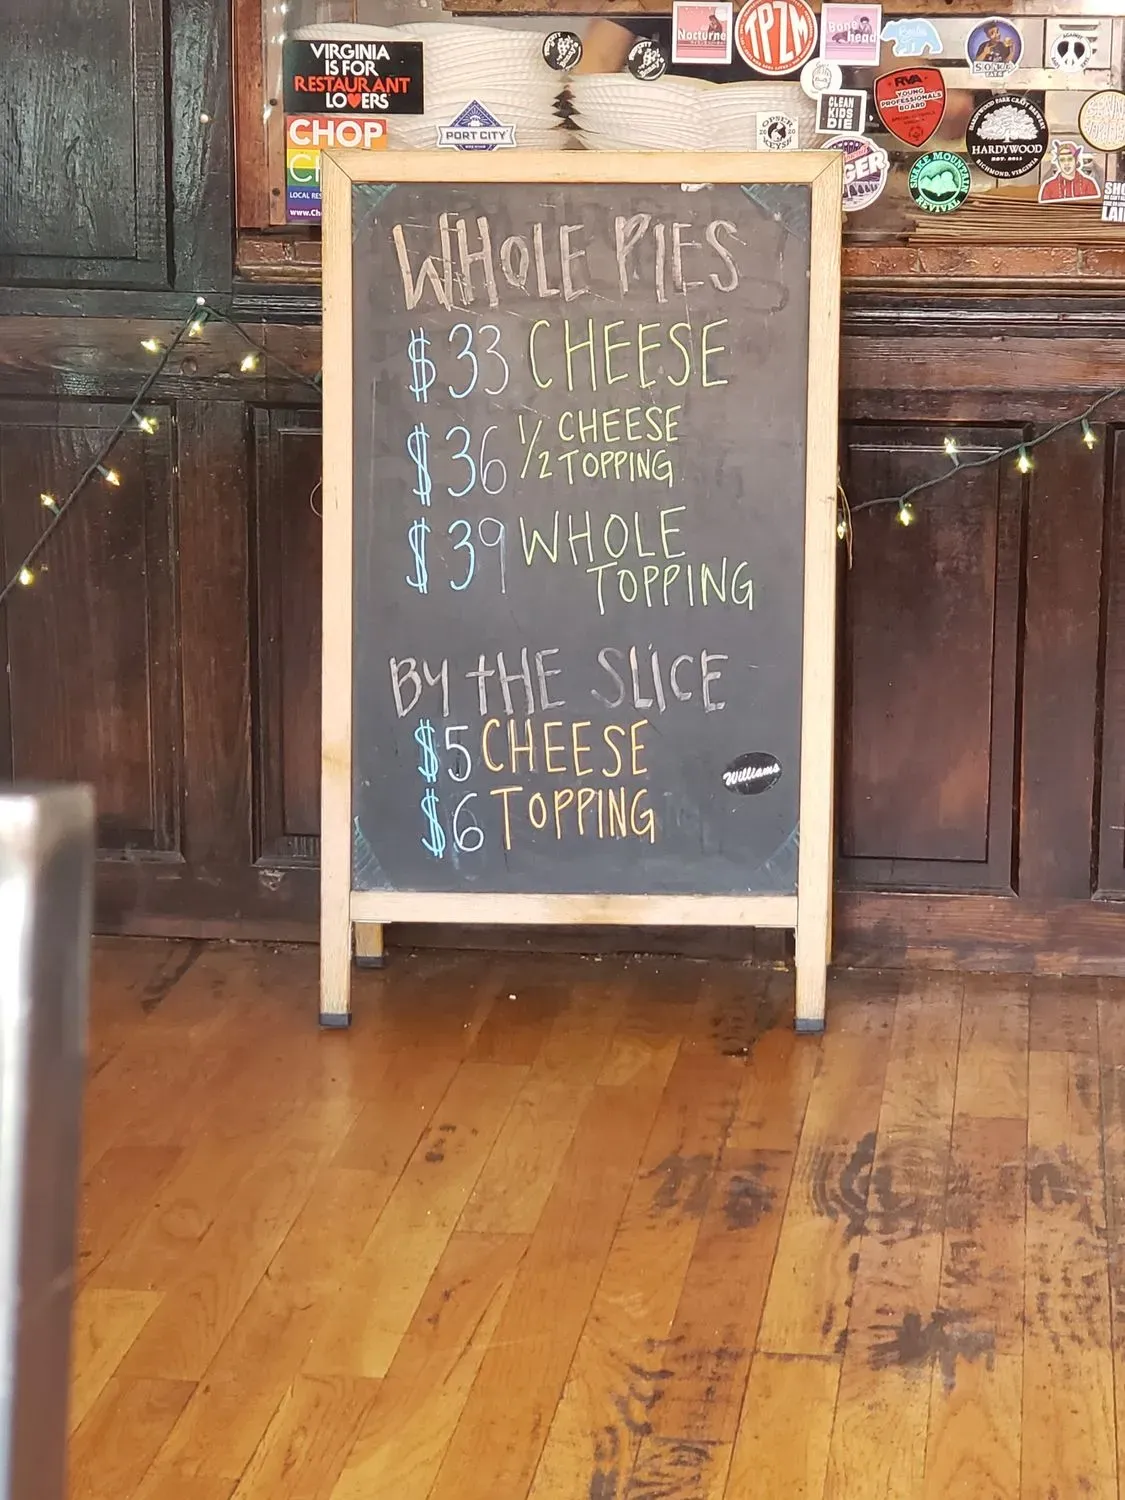 VIRGINIA
IS FOR
RESTAURANT
LOVERS
CHOP
LOCAL RES
PORT CITY
Nocturne
TPZM
Bone
head
CLEAN
KIDS
DIE
RVA
YOUNG
PROFESSIONALS
BOARD
HARDYWOOD PARK CRAFT BREWERY
HARDYWOOD
EST. 2011
RICHMOND, VIRGINIA
SNAKE MOUNTAIN
REVIVAL
WHOLE PIES
$33 CHEESE
$36 1/2 CHEESE
1/2 TOPPING
$39 WHOLE
TOPPING
BY THE SLICE
$5 CHEESE
$6 TOPPING
Williams